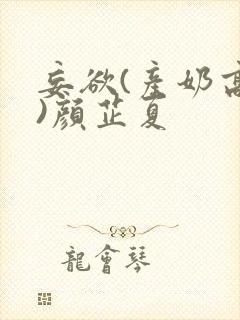 妄欲(産奶高
)顔芷夏
龍會琴